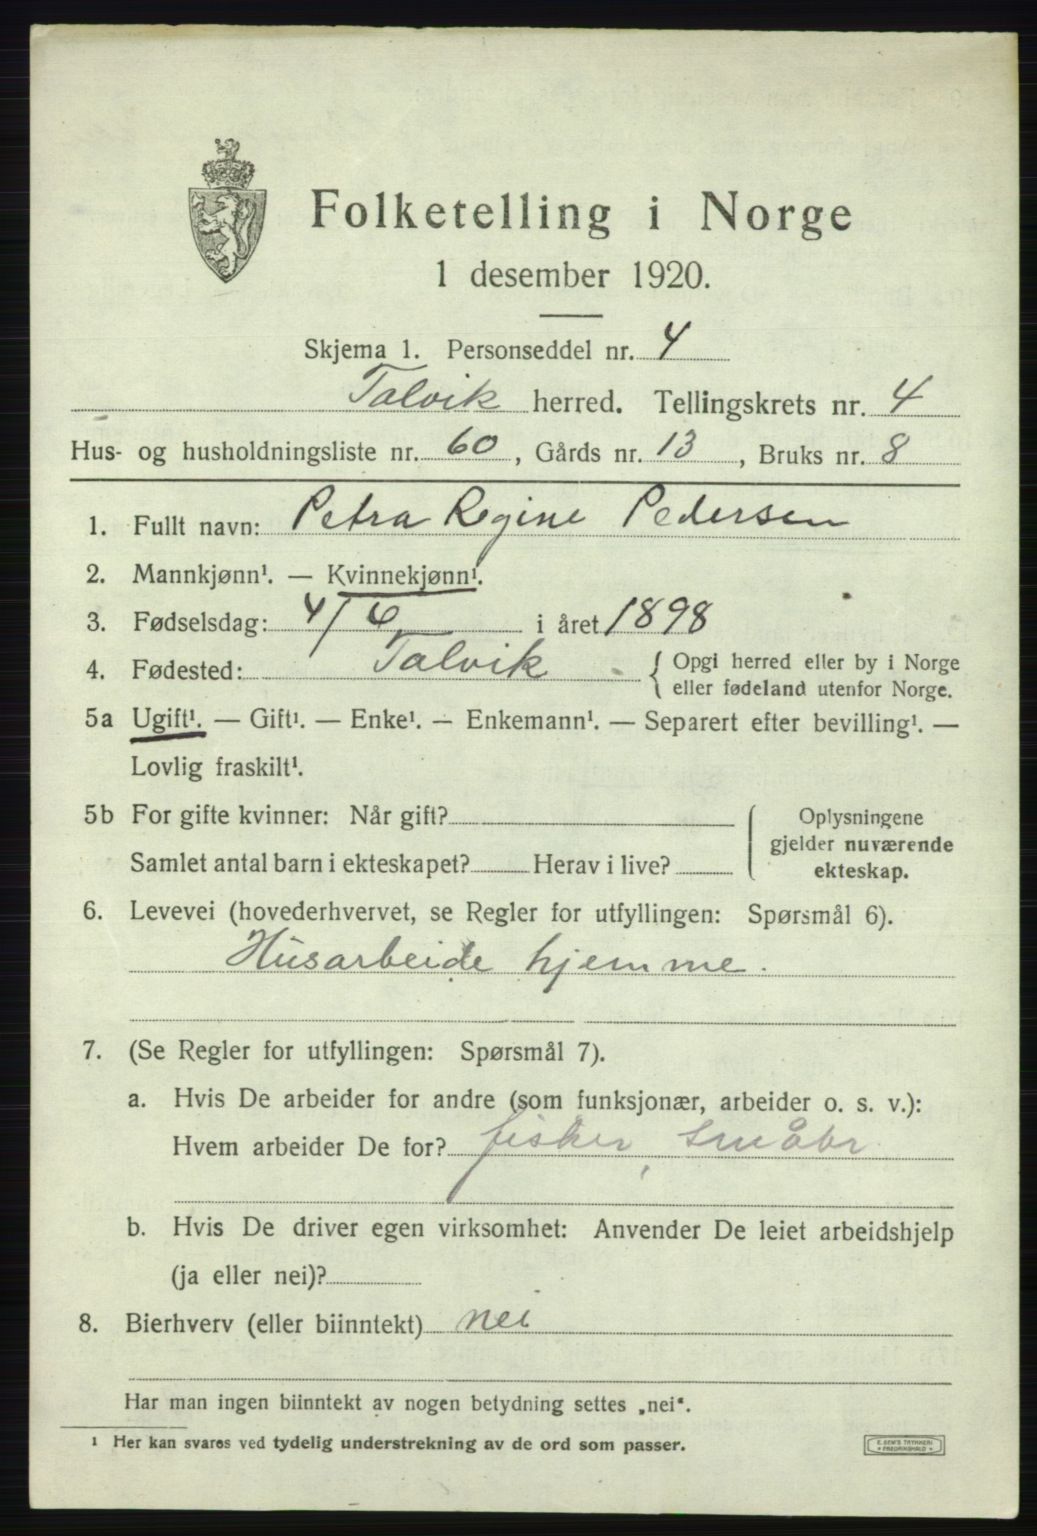 Folketelling i Norge
1 desember 1920.
Skjema 1. Personseddel nr. 4
Talvik herred. Tellingskrets nr. 4
Hus- og husholdningsliste nr. 60, Gårds nr. 13, Bruks nr. 8
1. Fullt navn: Petra Regine Pedersen
2. Mannkjønn¹. — Kvinnekjønn¹.
3. Fødselsdag: 4/6 i året 1898
4. Fødested: Talvik { Opgi herred eller by i Norge
eller fødeland utenfor Norge.
5a Ugift¹. — Gift¹. — Enke¹. — Enkemann¹. — Separert efter bevilling¹. —
Lovlig fraskilt¹.
5b For gifte kvinner: Når gift?
Samlet antal barn i ekteskapet? Herav i live?
Oplysningene
gjelder nuværende
ekteskap.
6. Levevei (hovederhvervet, se Regler for utfyllingen: Spørsmål 6).
Husarbeide hjemme.
7. (Se Regler for utfyllingen: Spørsmål 7).
a. Hvis De arbeider for andre (som funksjonær, arbeider o. s. v.):
Hvem arbeider De for? fisker, småbr
b. Hvis De driver egen virksomhet: Anvender De leiet arbeidshjelp
(ja eller nei)?
8. Bierhverv (eller biinntekt) nei
Har man ingen biinntekt av nogen betydning settes „nei“.
¹ Her kan svares ved tydelig understrekning av de ord som passer.
E. SEM'S TRYKKERI
FREDRIKSHALD